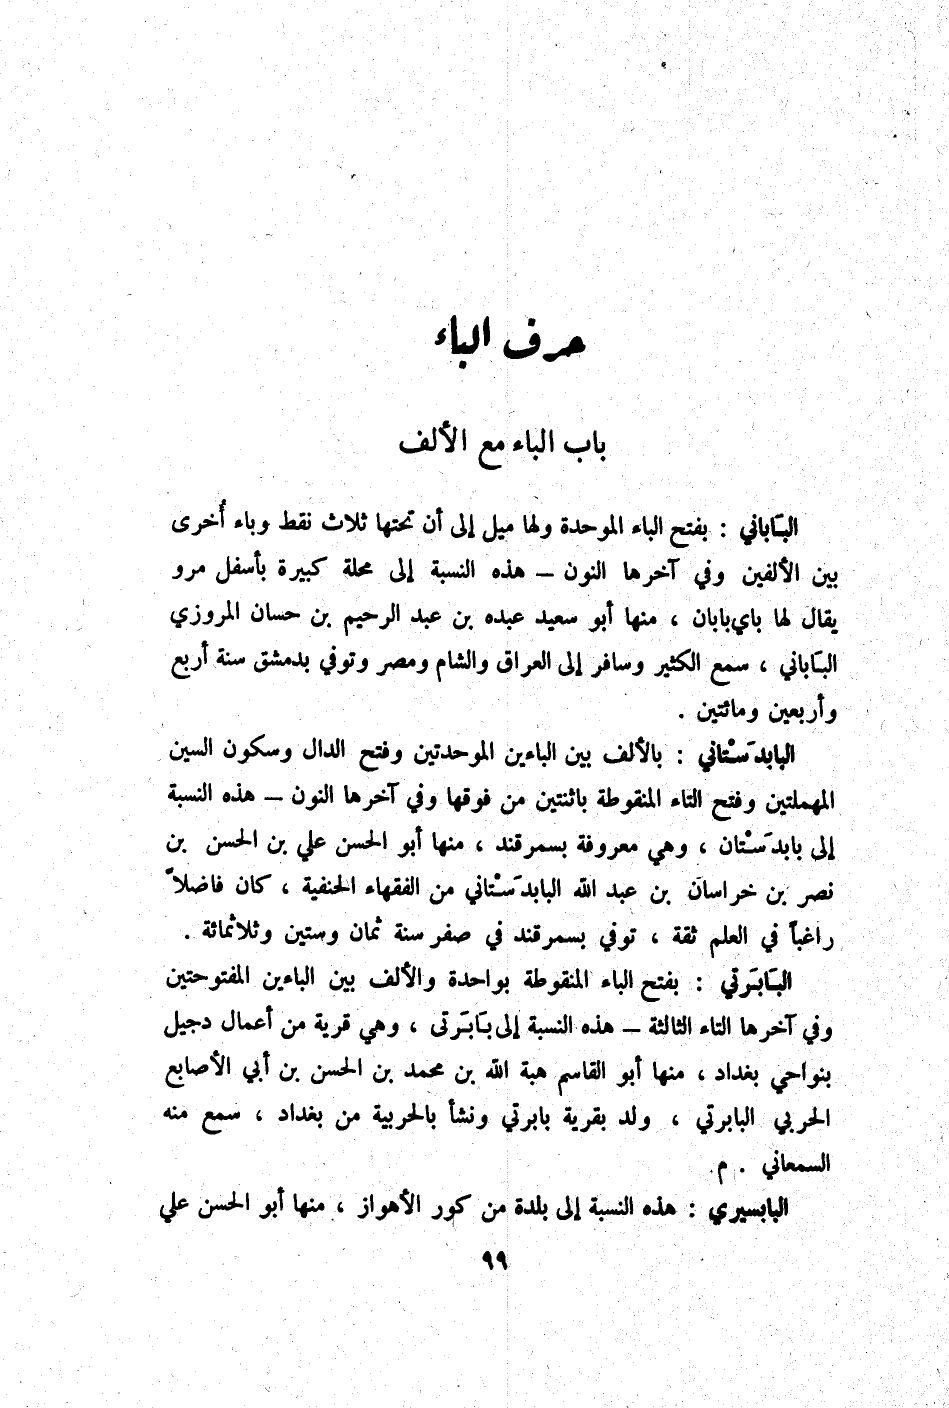 حرف الباء
باب الباء مع الألف
البَاباني : بفتح الباء الموحدة ولها ميل إلى أن تحتها ثلاث نقط وباء أُخرى
بين الألفين وفي آخرها النون – هذه النسبة إلى محلة كبيرة بأسفل مرو
يقال لها باي‌بابان ، منها أبو سعيد عبده بن عبد الرحيم بن حسان المروزي
البَاباني ، سمع الكثير وسافر إلى العراق والشام ومصر وتوفي بدمشق سنة أربع
وأربعين ومائتين .
البابدَسْتاني : بالألف بين الباءين الموحدتين وفتح الدال وسكون السين
المهملتين وفتح التاء المنقوطة باثنتين من فوقها وفي آخرها النون – هذه النسبة
إلى بابدَسْتان ، وهي معروفة بسمرقند ، منها أبو الحسن علي بن الحسن بن
نصر بن خراسان بن عبد الله البابدَسْتاني من الفقهاء الحنفية ، كان فاضلاً
راغباً في العلم ثقة ، توفي بسمرقند في صفر سنة ثمان وستين وثلاثمائة .
البَابَرتي : بفتح الباء المنقوطة بواحدة والألف بين الباءين المفتوحتين
وفي آخرها التاء الثالثة – هذه النسبة إلى بَابَرتى ، وهي قرية من أعمال دجيل
بنواحي بغداد ، منها أبو القاسم هبة الله بن محمد بن الحسن بن أبي الأصابع
الحربي البابرتي ، ولد بقرية بابرتي ونشأ بالحربية من بغداد ، سمع منه
السمعاني . م
البابسيري : هذه النسبة إلى بلدة من كور الأهواز ، منها أبو الحسن علي
٩٩